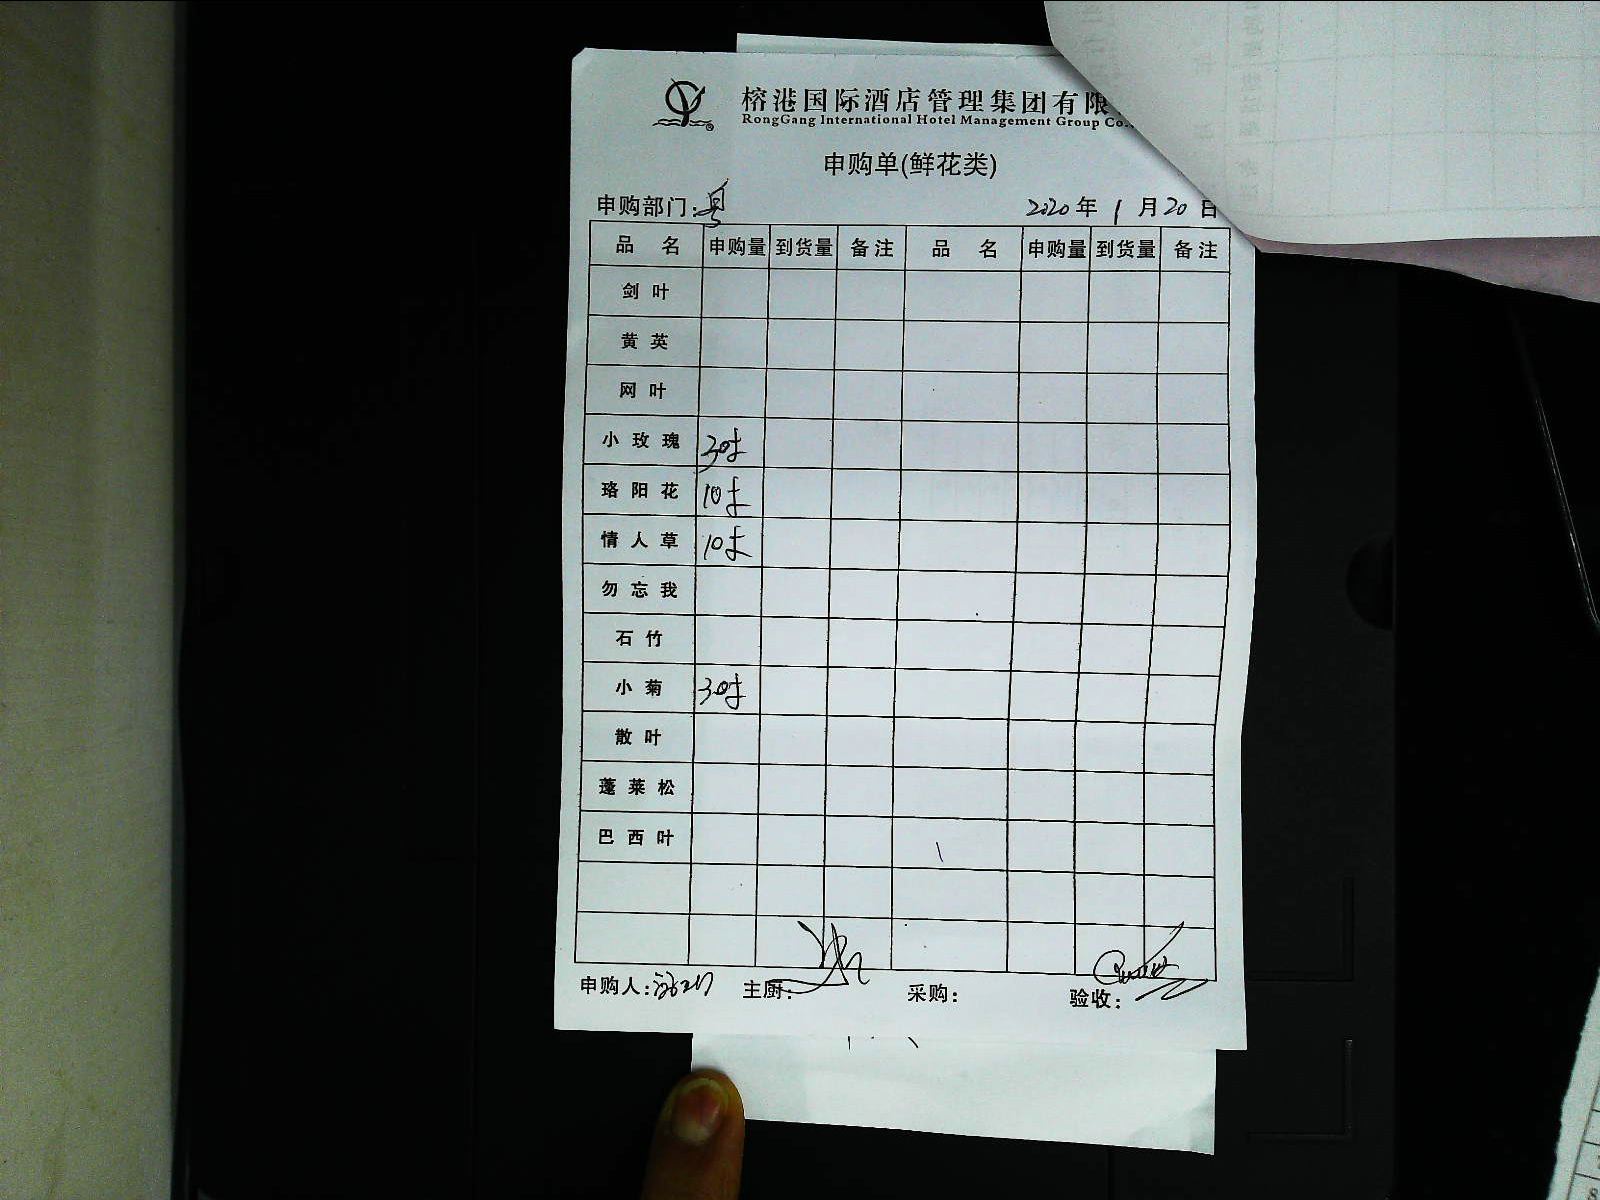 榕港国际酒店管理集团有限
RongGang International Hotel Management Group Co.,
申购单(鲜花类)
申购部门: 2020年1月20日
品名 申购量 到货量 备注 品名 申购量 到货量 备注
剑叶
黄英
网叶
小玫瑰 30扎
珞阳花 10扎
情人草 10扎
勿忘我
石竹
小菊 30扎
散叶
蓬莱松
巴西叶
申购人: 主厨: 采购: 验收: